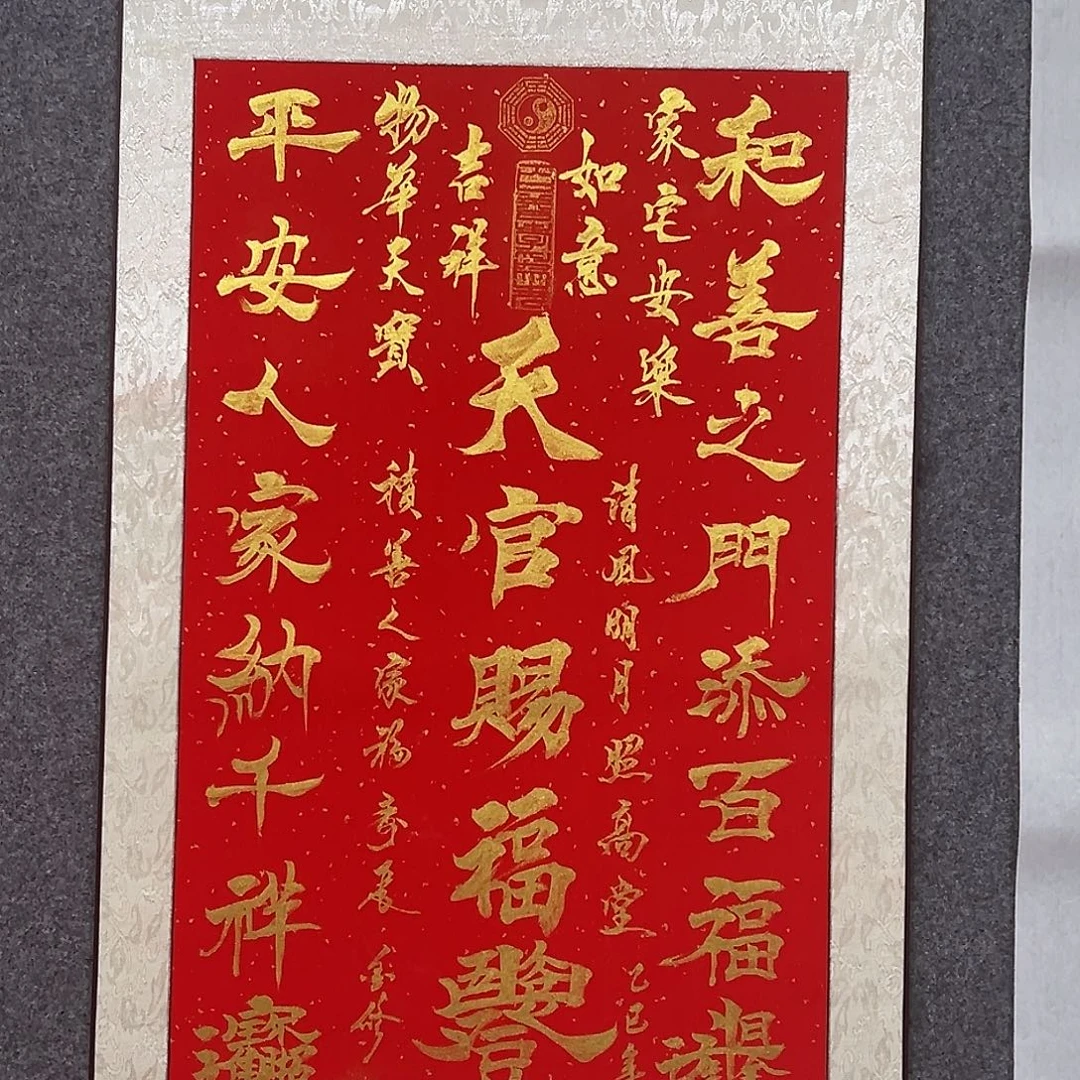 和善之門添百福
家宅安樂
清風明月照高堂
乙巳年
如意
天官賜福
吉祥
物華天寶
積善人家福壽長
平安人家納千祥